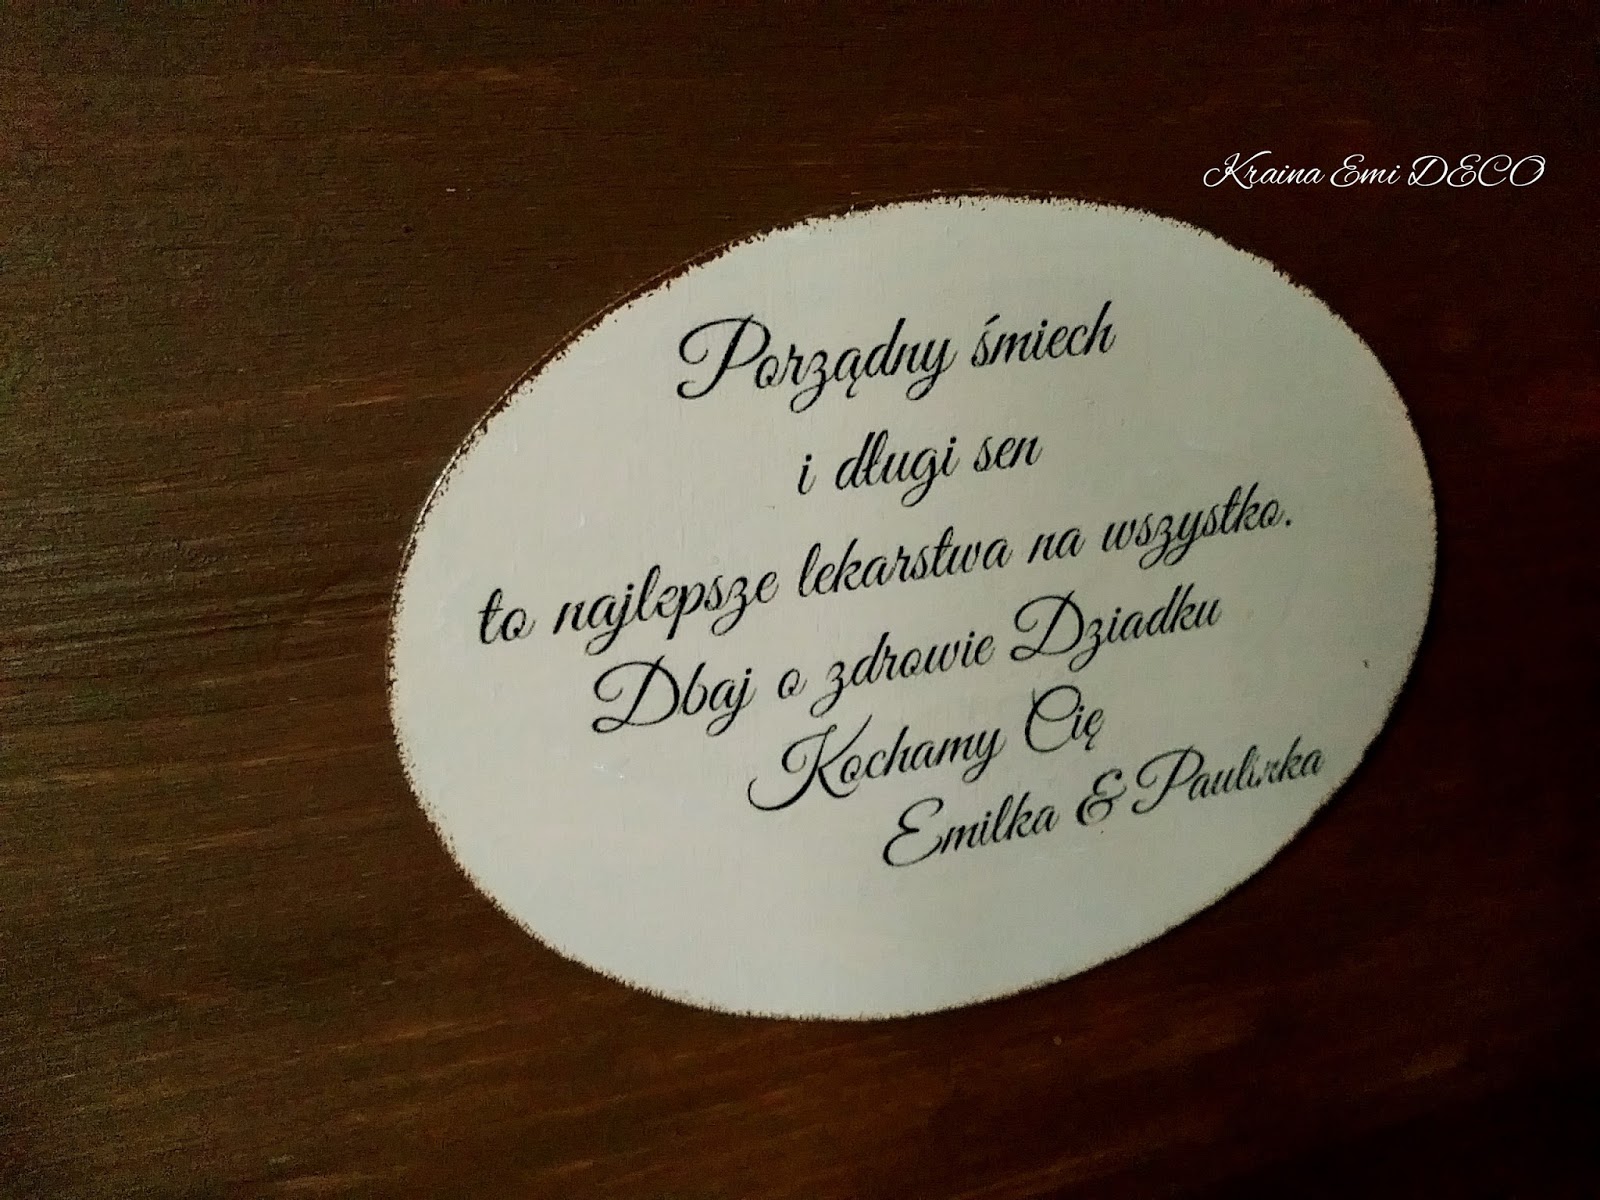 Kraina Emi DECO
Porządny śmiech
i długi sen
to najlepsze lekarstwa na wszystko.
Dbaj o zdrowie Dziadku
Kochamy Cię
Emilka & Paulinka